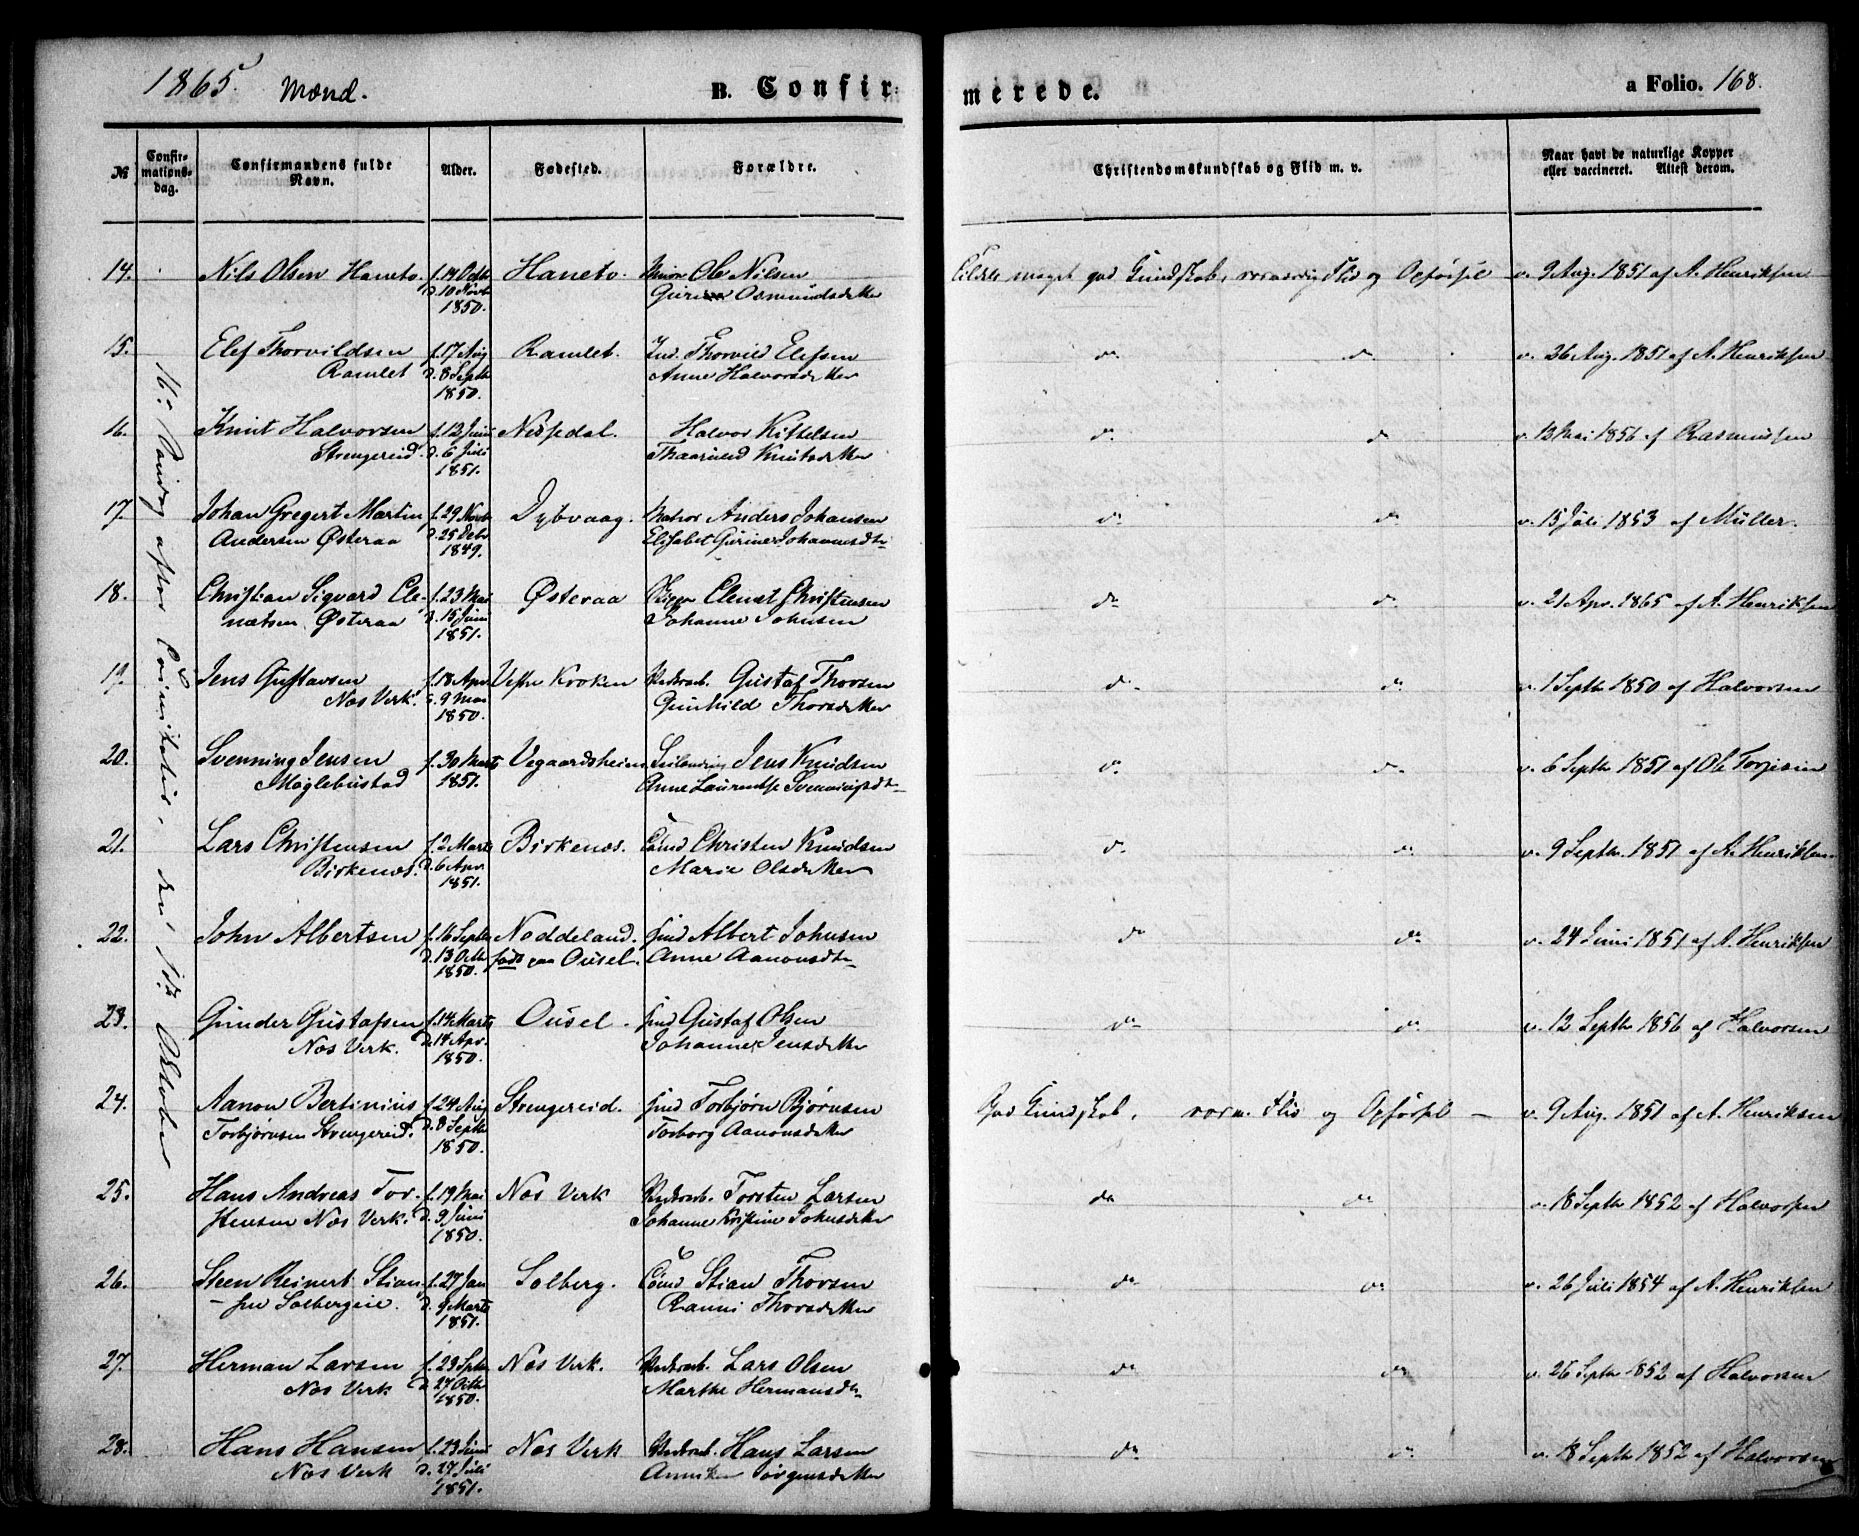 1865. Mænd.
B. Confirmerede.
a Folio. 168.
№
Confirmationsdag.
Confirmandens fulde Navn.
Alder.
Fødested.
Forældre.
Christendomskundskab og Flid m. v.
Naar havt de naturlige Kopper eller vaccineret. Attest derom.
16. Søndag after Trinitatis, den 1ste Oktober
14. Nils Olsen Haneto. f. 14 Octb. Haneto. Ole Nilsen meget god Kundskab, Flid og Opførsel v. 9 Aug. 1851 af A. Henriksen
d. 10 Novb. Osmundsdatter
1850.
15. Elef Thorvildsen f. 17 Aug Ramlet. Ind. Thorvild Elefsen do do v. 26 Aug. 1851 af A. Henriksen
Ramlet d. 8 Septb Anne Halvorsdatter
1850.
16. Knut Halvorsen f. 12 Juni Nespedal. Halvor Kittelsen do do v. 13 Mai 1856 af Rasmussen
Strengereid. d. 6 Juli Knutsdatter
1851.
17. Johan Gregert Martin f. 29 Novb Dybvaag. Matros Anders Johansen do do v. 15 Juli 1853 af Müller.
Andersen Østeraa d. 25 Debr Elisabet Gurine Johannesdtr
1849.
18. Christian Sigvard Cle- f. 23 Mai Østeraa Christensen do do v. 21 Apr. 1865 af A. Henriksen
metsen Østeraa d. 15 Juni Johanne Johnsen
1851.
19. Jens Gustavsen f. 18 Apr. Vestre Kroken Verksarb. Gustaf Thorsen do do v. 1 Septb 1850 af Halvorsen
Næs Verk. d. 9 Mai Gunhild Thorsdatter
1850.
20. Svenning Jensen f. 30 Marts Vegaardsheien Jens Knudsen do do v. 6 Septb 1851 af Ole Torjesen
Møglebustad 1851. Anne Laurentse Svenningsdtr
21. Lars Christensen f. 2 Marts Birkenæs. Christen Knudsen do do v. 9 Septb. 1851 af A. Henriksen
Birkenæs. d. 6 Apr. Marie Olsdatter
1851.
22. John Albertsen f. 16 Septb Noddeland. Ind Albert Johnsen do do v. 24 Juni 1851 af A. Henriksen
d. 13 Octb født paa Ousel. Anne Aanonsdtr
1850.
23. Gunder Gustafsen f. 14 Marts Ousel. Ind Gustaf Olsen do do v. 12 Septb 1856 af Halvorsen
Næs Verk. d. 14 Apr. Johanne Jensdatter
1850.
24. Aanon Bertinius f. 24 Aug Strengereid. Ind Torbjørn Bjørnsen God Kundskab, vorn. Flid og Opførsel — v. 9 Aug. 1851 af A. Henriksen
Torbjørnsen Strengereid. d. 8 Septb Torborg Aanonsdatter
1850.
25. Hans Andreas Tor- f. 19 Mai Næs Verk Verksarb. Torsten Larsen do do v. 18 Septb 1852 af Halvorsen
stensen Næs Verk. d. 9 Juni Johanne Kristine Johnsdatter
1850.
26. Steen Reinert Stian- f. 27 Jan Solberg. Stian Thorsen do do v. 26 Juli 1854 af A. Henriksen
sen Solbergeie. d. 9 Marts Thorsdatter
1851.
27. Herman Larsen f. 23 Septb Næs Verk. Verksarb. Lars Olsen do do v. 26 Septb 1852 af Halvorsen
Næs Verk d. 27 Octb Marthe Hermansdtr
1850.
28. Hans Hansen f. 23 Juni Næs Verk Verksarb. Hans Larsen do do v. 18 Septb 1852 af Halvorsen
Næs Verk d. 27 Juli Anniken Jørgensdatter
1851.